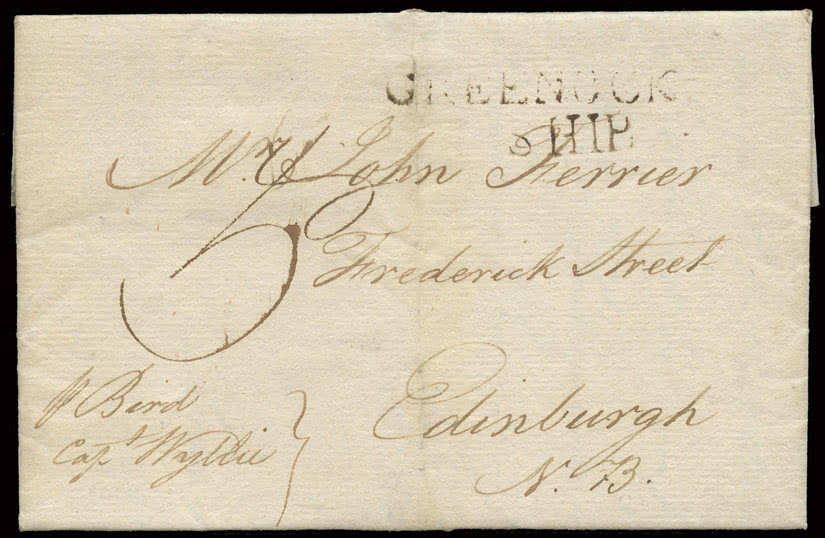 GREENOCK
SHIP
Mr. John Ferrier
Frederick Street
Edinburgh
N. B.
5
p Bird
Capt Wyllie